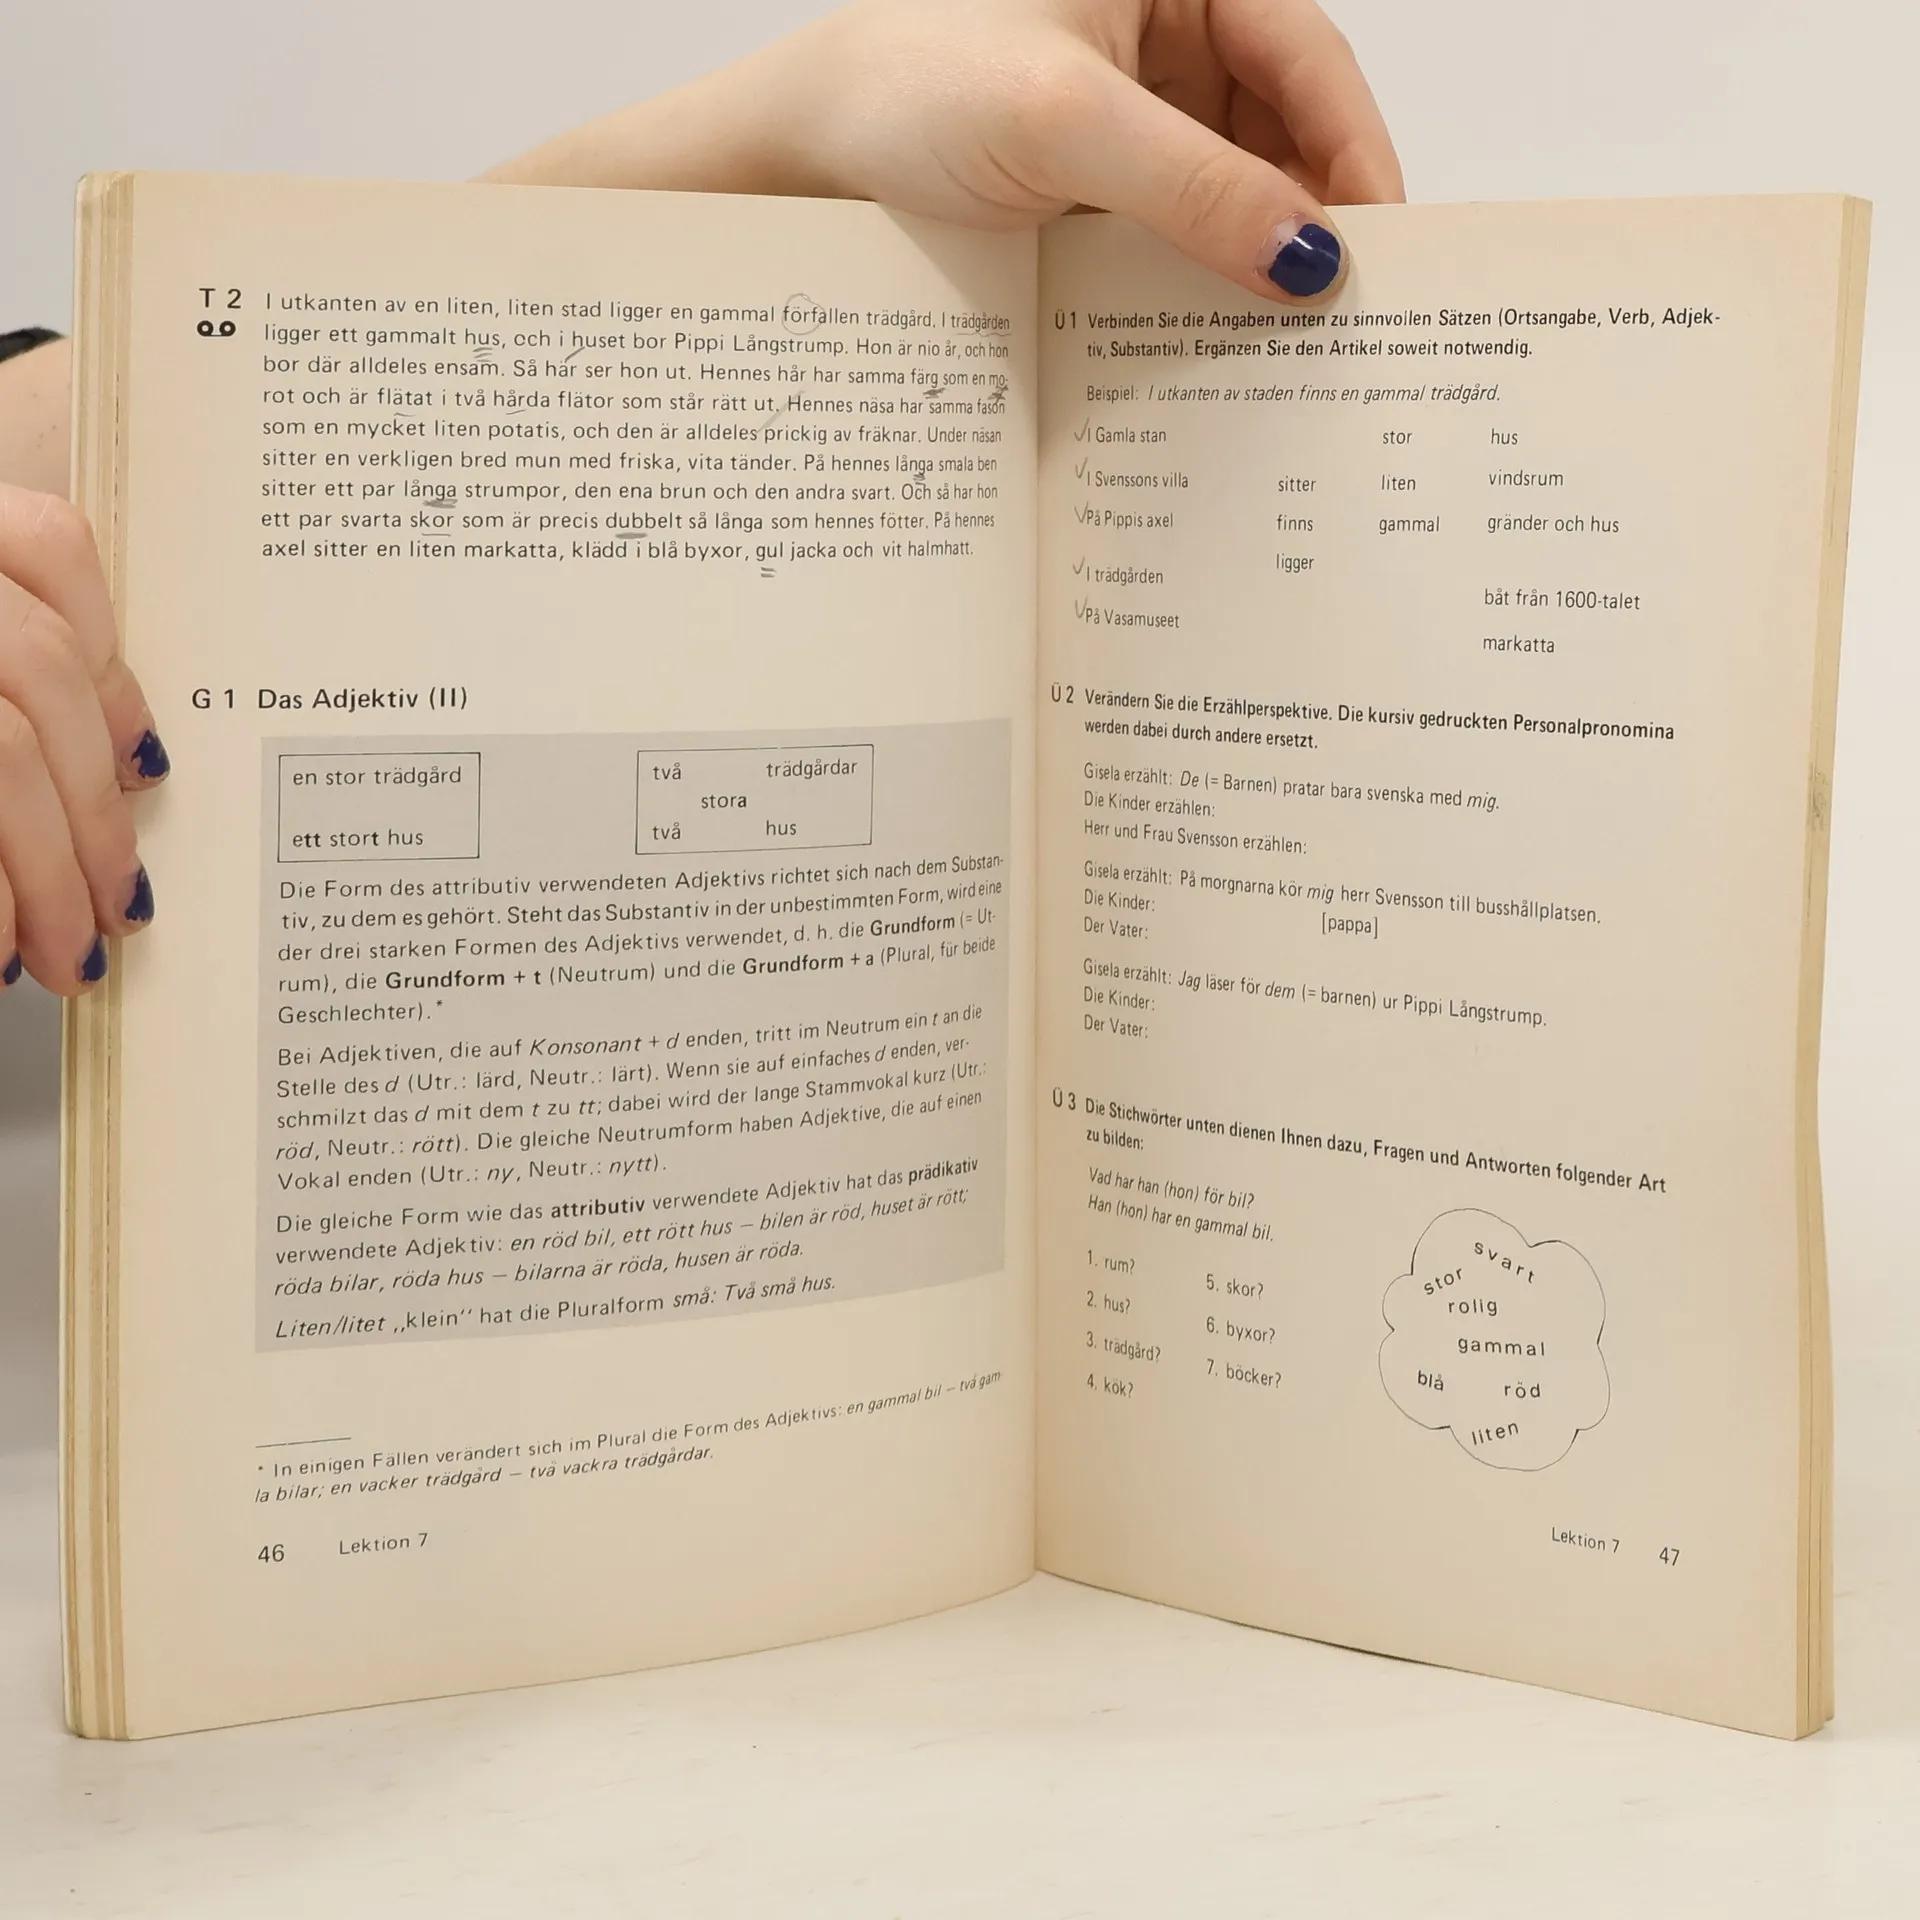 T 2 I utkanten av en liten, liten stad ligger en gammal förfallen trädgård. I trädgården
ligger ett gammalt hus, och i huset bor Pippi Långstrump. Hon är nio år, och hon
bor där alldeles ensam. Så här ser hon ut. Hennes hår har samma färg som en mo-
rot och är flätat i två hårda flätor som står rätt ut. Hennes näsa har samma fason
som en mycket liten potatis, och den är alldeles prickig av fräknar. Under näsan
sitter en verkligen bred mun med friska, vita tänder. På hennes långa smala ben
sitter ett par långa strumpor, den ena brun och den andra svart. Och så har hon
ett par svarta skor som är precis dubbelt så långa som hennes fötter. På hennes
axel sitter en liten markatta, klädd i blå byxor, gul jacka och vit halmhatt.
G 1 Das Adjektiv (II)
en stor trädgård
ett stort hus
två trädgårdar
stora
två hus
Die Form des attributiv verwendeten Adjektivs richtet sich nach dem Substan-
tiv, zu dem es gehört. Steht das Substantiv in der unbestimmten Form, wird eine
der drei starken Formen des Adjektivs verwendet, d. h. die Grundform (= Ut-
rum), die Grundform + t (Neutrum) und die Grundform + a (Plural, für beide
Geschlechter).*
Bei Adjektiven, die auf Konsonant + d enden, tritt im Neutrum ein t an die
Stelle des d (Utr.: lärd, Neutr.: lärt). Wenn sie auf einfaches d enden, ver-
schmilzt das d mit dem t zu tt; dabei wird der lange Stammvokal kurz (Utr.:
röd, Neutr.: rött). Die gleiche Neutrumform haben Adjektive, die auf einen
Vokal enden (Utr.: ny, Neutr.: nytt).
Die gleiche Form wie das attributiv verwendete Adjektiv hat das prädikativ
verwendete Adjektiv: en röd bil, ett rött hus – bilen är röd, huset är rött;
röda bilar, röda hus – bilarna är röda, husen är röda.
Liten/litet „klein‘‘ hat die Pluralform små: Två små hus.
* In einigen Fällen verändert sich im Plural die Form des Adjektivs: en gammal bil – två gam-
la bilar; en vacker trädgård – två vackra trädgårdar.
46 Lektion 7
Ü 1 Verbinden Sie die Angaben unten zu sinnvollen Sätzen (Ortsangabe, Verb, Adjek-
tiv, Substantiv). Ergänzen Sie den Artikel soweit notwendig.
Beispiel: I utkanten av staden finns en gammal trädgård.
I Gamla stan stor hus
I Svenssons villa sitter liten vindsrum
På Pippis axel finns gammal gränder och hus
ligger
I trädgården
båt från 1600-talet
På Vasamuseet
markatta
Ü 2 Verändern Sie die Erzählperspektive. Die kursiv gedruckten Personalpronomina
werden dabei durch andere ersetzt.
Gisela erzählt: De (= Barnen) pratar bara svenska med mig.
Die Kinder erzählen:
Herr und Frau Svensson erzählen:
Gisela erzählt: På morgnarna kör mig herr Svensson till busshållplatsen.
Die Kinder: [pappa]
Der Vater:
Gisela erzählt: Jag läser för dem (= barnen) ur Pippi Långstrump.
Die Kinder:
Der Vater:
Ü 3 Die Stichwörter unten dienen Ihnen dazu, Fragen und Antworten folgender Art
zu bilden:
Vad har han (hon) för bil?
Han (hon) har en gammal bil.
1. rum?
2. hus?
3. trädgård?
4. kök?
5. skor?
6. byxor?
7. böcker?
svart
stor
rolig
gammal
blå
röd
liten
Lektion 7 47